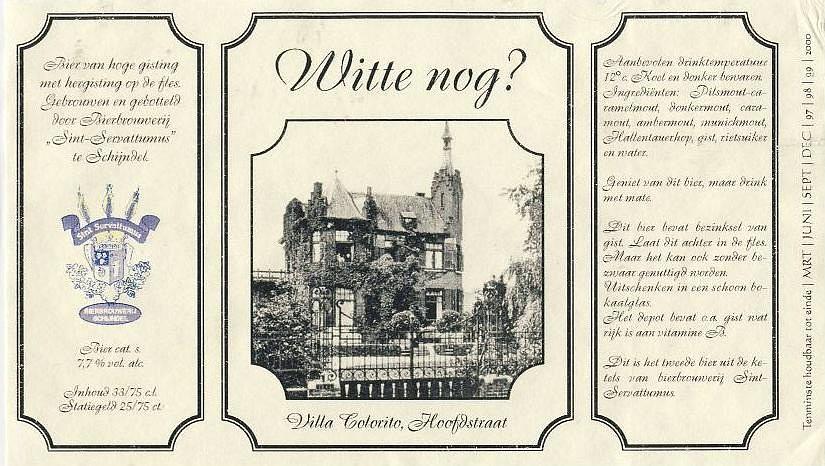 Bier van hoge gisting
met hergisting op de fles.
Gebrouwen en gebotteld
door Bierbrouwerij
„Sint-Servattumus"
te Schijndel.
Sint Servattumus
BIERBROUWERIJ
SCHIJNDEL
Bier cat. s.
7,7 % vol. alc.
Inhoud 33/75 c.l.
Statiegeld 25/75 ct.
Witte nog?
Villa Colorito, Hoofdstraat
Aanbevolen drinktemperatuur
12° c. Koel en donker bewaren.
Ingrediënten: Pilsmout-ca-
ramelmout, donkermout, cara-
mout, ambermout, munichmout,
Hallentauerhop, gist, rietsuiker
en water.
Geniet van dit bier, maar drink
met mate.
Dit bier bevat bezinksel van
gist. Laat dit achter in de fles.
Maar het kan ook zonder be-
zwaar genuttigd worden.
Uitschenken in een schoon bo-
kaalglas.
Het depot bevat o.a. gist wat
rijk is aan vitamine B.
Dit is het tweede bier uit de ke-
tels van bierbrouwerij Sint-
Servattumus.
Tenminste houdbaar tot einde | MRT | JUNI | SEPT | DEC | 97 | 98 | 99 | 2000